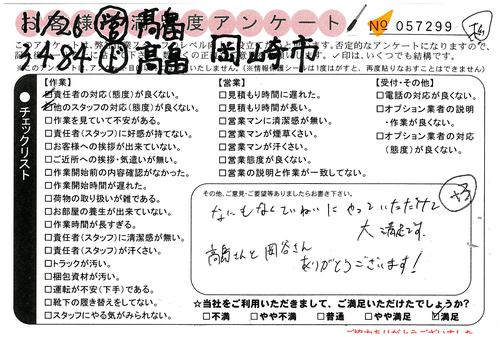 11/26 営 高畠 岡崎市
お客様満足度アンケート
No 057299
34-84 作 高畠
チェックリスト
【作業】
責任者の対応(態度)が良くない。
他のスタッフの対応(態度)が良くない。
□作業を見ていて不安がある。
□責任者(スタッフ)に好感が持てない。
□お客様への挨拶が出来ていない。
□ご近所への挨拶・気遣いが無い。
□作業開始前の内容確認がなかった。
□作業開始時間が遅れた。
□荷物の取り扱いが雑である。
□お部屋の養生が出来ていない。
□作業時間が長すぎる。
□責任者(スタッフ)に清潔感が無い。
□責任者(スタッフ)が汗くさい。
□トラックが汚い。
□梱包資材が汚い。
□運転が不安(下手)である。
□靴下の履き替えをしてない。
□スタッフにやる気がみられない。
【営業】
□見積もり時間に遅れた。
□見積もり時間が長い。
□営業マンに清潔感が無い。
□営業マンが煙草くさい。
□営業マンが汗くさい。
□営業態度が良くない。
□営業の説明と作業が一致してない。
【受付・その他】
□電話の対応が良くない。
□オプション業者の説明
・作業が良くない。
□オプション業者の対応
(態度)が良くない。
その他、ご意見・ご要望等ありましたらお書き下さい。
なにもなくていねいにやっていただけて
大満足です。
高畠さんと岡谷さん
ありがとうございます!
☆当社をご利用いただきまして、ご満足いただけたでしょうか?
□不満 □やや不満 □普通 □やや満足 ☑満足
ご協力ありがとうございました